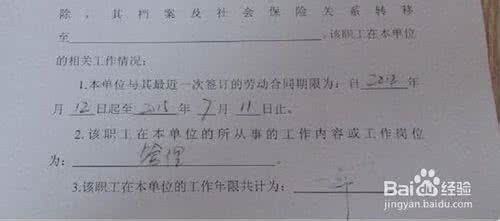 除，其档案及社会保险关系转移
至____________________，该职工在本单位
的相关工作情况：
1.本单位与其最近一次签订的劳动合同期限为：自2012年
月12日起至2015年7月11日止。
2.该职工在本单位的所从事的工作内容或工作岗位
为：管理
3.该职工在本单位的工作年限共计为：
Baidu经验
jingyan.baidu.com